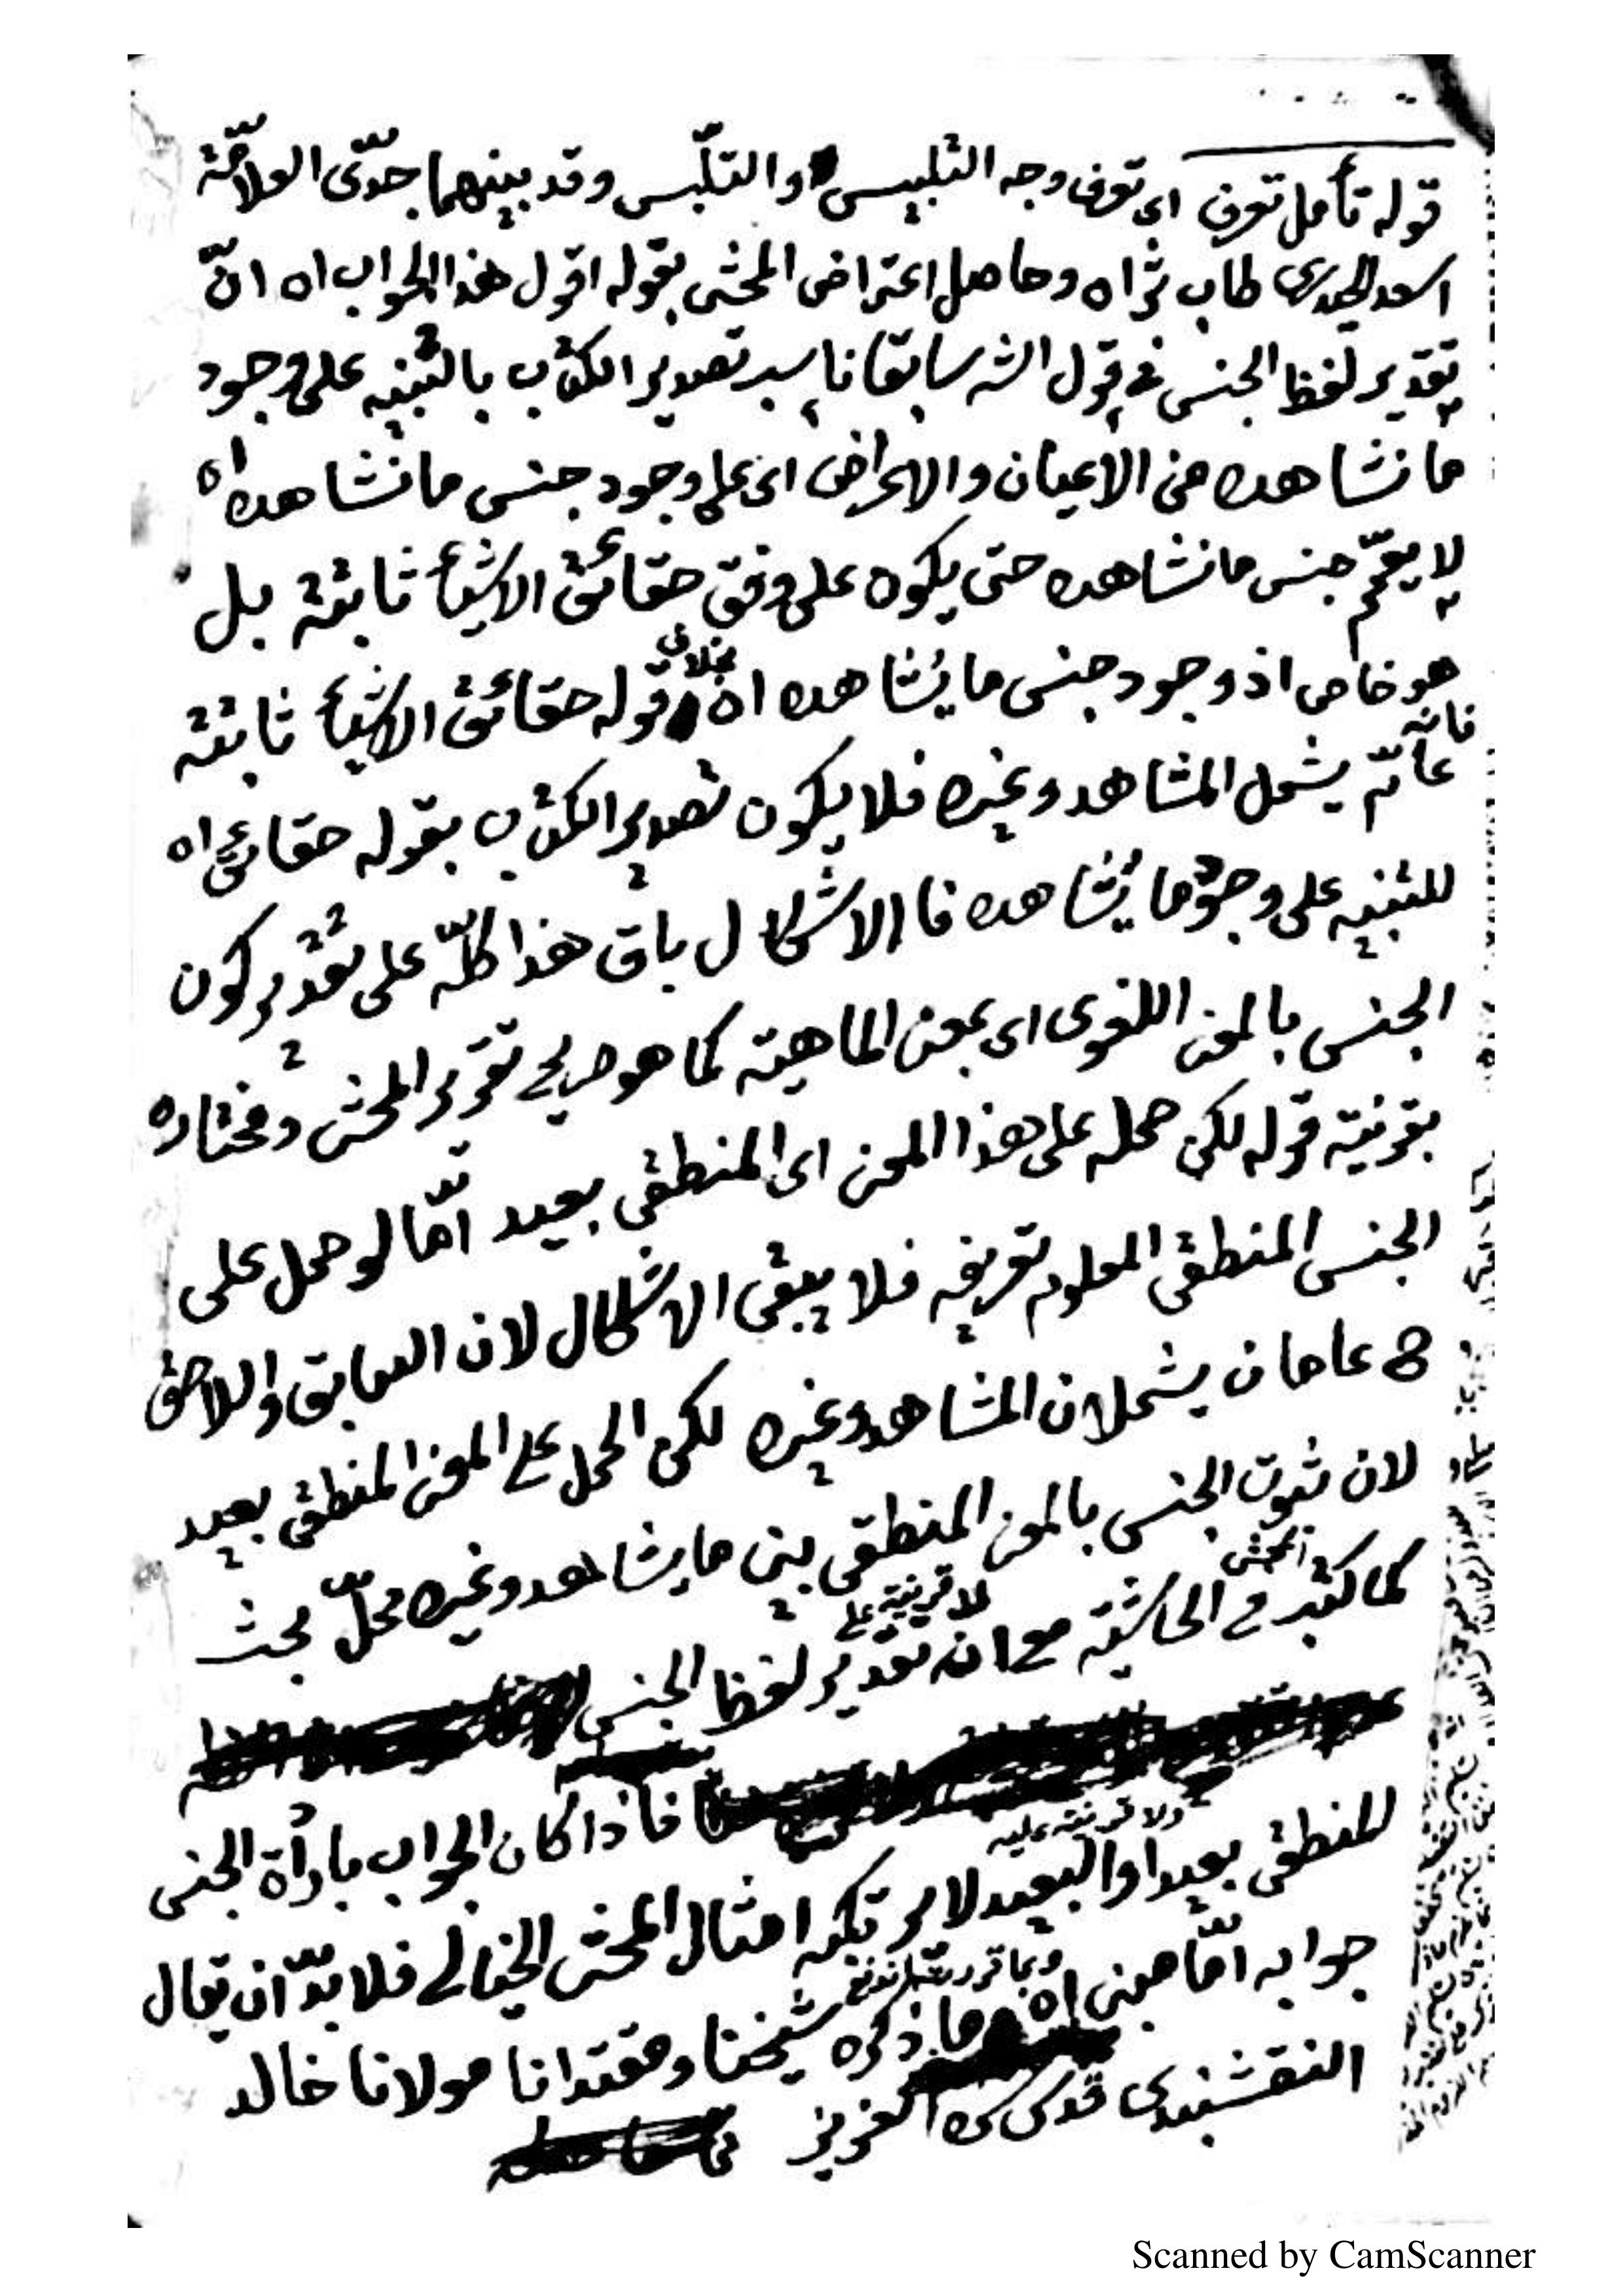 قوله تأمل تعرف اى تعرف وجه التلبيس والتلبّس وقد بينهما جدّى العلامّة
اسعد الحيدرى طاب ثراه وحاصل اعتراض المحشى بقوله اقول هذا الجواب اه انّ
تقدير لفظ الجنس فى قول الشه سابقا ناسب تصدير الكتاب بالتنبيه على وجود
ما نشاهده من الاعيان والاعراض اى على وجود جنس ما نشاهده اه
لا يعمّ جنس ما نشاهده حتى يكون على وفق حقائق الاشيأ ثابتة بل
هو خاص اذ وجود جنس ما يُشاهده اه بخلاف قوله حقائق الاشيأ ثابتة
فانّه
عامّ يشمل المشاهد وغيره فلا يكون تصدير الكتاب بقوله حقائق اه
للتنبيه على وجود ما يُشاهده فا الاشكال باق هذا كلّه على تقدير كون
الجنس بالمعنى اللغوى اى بمعنى الماهية كما هو صريح تقرير المحشى ومختاره
بقرينة قوله لكن حمله على هذا المعنى اى المنطقى بعيد امّا لو حمل على
الجنس المنطقى المعلوم تعريفه فلا يبقى الاشكال لان السابق واللاحق
ح عامان يشملان المشاهد وغيره لكن الحمل على المعنى المنطقى بعيد
لان ثبوت الجنس بالمعنى المنطقى بين ما يشاهد وغيره محلّ بحث
كما كتبه المحشى فى الحاشية مع ان تقدير لفظ الجنس لا قرينة على
فاذا كان الجواب بارأة الجنس
المنطقى بعيدا ولا قرينة عليه والبعيد لا يرتكبه امثال المحشى الخيالى فلا بدّ ان يقال
جوابه امّا معنى اه وبما قررت اندفع ما ذكره شيخنا ومقتدانا مولانا خالد
النقشبندى قدس سره العزيز
Scanned by CamScanner